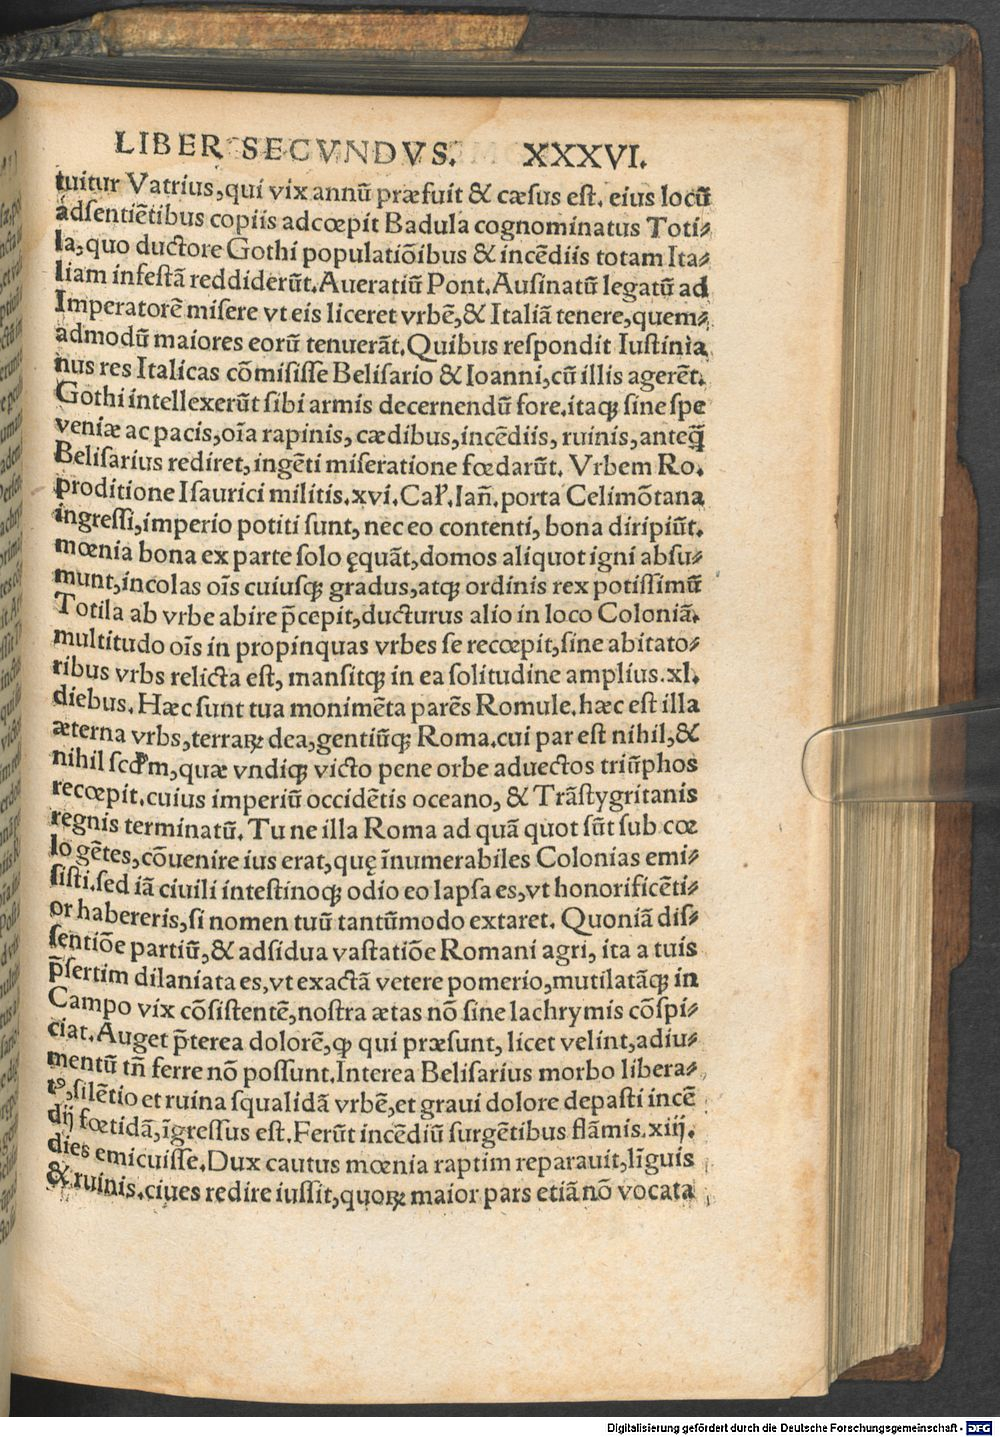 LIBER SECVNDVS. XXXVI.
tuitur Vatrius,qui vix annū præfuit & cæsus est. eius locū
adsentiētibus copiis adcœpit Badula cognominatus Toti⸗
la,quo ductore Gothi populatiōibus & incēdiis totam Ita⸗
liam infestā reddiderūt.Aueratiū Pont.Ausinatū legatū ad
Imperatorē misere vt eis liceret vrbē,& Italiā tenere,quem⸗
admodū maiores eorū tenuerāt.Quibus respondit Iustinia
nus res Italicas cōmisisse Belisario & Ioanni,cū illis agerēt.
Gothi intellexerūt sibi armis decernendū fore.itaqꝫ sine spe
veniæ ac pacis,oīa rapinis, cædibus,incēdiis, ruinis,anteq̄
Belisarius rediret,ingēti miseratione fœdarūt. Vrbem Ro.
proditione Isaurici militis.xvi.Cal.Iañ.porta Celimōtana
ingressi,imperio potiti sunt, nec eo contenti, bona diripiūt.
mœnia bona ex parte solo ęquāt,domos aliquot igni absu⸗
munt,incolas oīs cuiusqꝫ gradus,atqꝫ ordinis rex potissimū
Totila ab vrbe abire p̄cepit,ducturus alio in loco Coloniā.
multitudo oīs in propinquas vrbes se recœpit,sine abitato⸗
ribus vrbs relicta est, mansitqꝫ in ea solitudine amplius.xl.
diebus.Hæc sunt tua monimēta parēs Romule.hæc est illa
æterna vrbs,terraꝝ dea,gentiūqꝫ Roma.cui par est nihil,&
nihil scd̄m,quæ vndiqꝫ victo pene orbe aduectos triūphos
recœpit.cuius imperiū occidētis oceano, & Trāstygritanis
regnis terminatū. Tu ne illa Roma ad quā quot sūt sub cœ
lo gētes,cōuenire ius erat,quę īnumerabiles Colonias emi⸗
sisti.sed iā ciuili intestinoqꝫ odio eo lapsa es,vt honorificēti⸗
or habereris,si nomen tuū tantūmodo extaret. Quoniā dis⸗
sentiōe partiū,& adsidua vastatiōe Romani agri, ita a tuis
p̄sertim dilaniata es,vt exactā vetere pomerio,mutilatāqꝫ in
Campo vix cōsistentē,nostra ætas nō sine lachrymis cōspi⸗
ciat.Auget p̄terea dolorē,ꝙ qui præsunt, licet velint,adiu⸗
mentū tñ ferre nō possunt.Interea Belisarius morbo libera⸗
tꝰ,silētio et ruina squalidā vrbē,et graui dolore depasti incē
dij fœtidā,īgressus est.Ferūt incēdiū surgētibus flāmis.xiij.
dies emicuisse.Dux cautus mœnia raptim reparauit,līguis
& ruinis.ciues redire iussit,quoꝝ maior pars etiā nō vocata
Digitalisierung gefördert durch die Deutsche Forschungsgemeinschaft - DFG